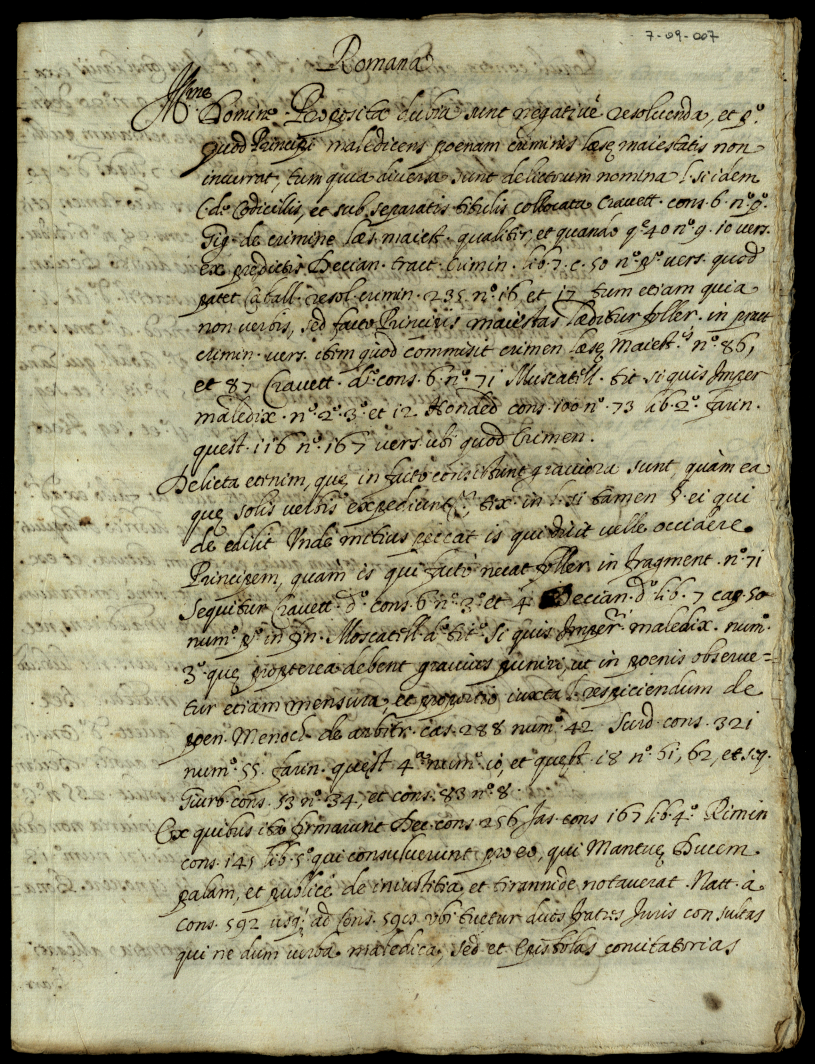 7-09-007
Romana
Ill.me Domine. Proposita dubia sunt negativè resolvenda, et p.o
quod Principi maledicens poenam criminis læsę maiestatis non
incurrat, tum quia diversa sunt delictorum nomina l. si idem
C. de Codicillis, et sub separatis titulis collocata Cravett. cons. 6. n.o 9.o
Gig. de crimine læs. maiest. qualiter, et quando q. 40 n.o 9. 10 vers.
ex predictis. Decian. tract. crimin. lib. 7. c. 50 n.o p.o vers. quod
patet Caball. resol. crimin. 235 n.o 16 et 17 tum etiam quia
non verbis, sed facto Principis maiestas læditur foller. in pract.
crimin. vers. item quod commisit crimen læsę Maiest. n.o 86,
et 87 Cravett. d.o cons. 6 n.o 71 Muscatell. tit. si quis Imper.
maledix. n.o 2.o 3.o et 12 Honded. cons. 100 n.o 73 lib. 2.o farin.
quest. 116 n.o 167 vers. ubi quod Crimen.
Delicta etenim, quę in facto consistunt graviora sunt, quàm ea
quę solis verbis expediunt.r, tex. in l. si tamen §. ei qui
de edilit. Unde mitius peccat is qui dicit velle occidere
Principem, quam is qui facto necat foller. in fragment. n.o 71
Sequitur Cravett. d.o cons. 6 n.o 3.o et 4 Decian. d.o lib. 7 cap. 50
num.o p.o in fin. Moscatell. d.o tit.o Si quis Imper. maledix. num.o
3.o quę propterea debent gravius puniri, ut in poenis observe=
tur etiam mensura, et proportio iuxta l. respiciendum de
poen. Menoch. de arbitr. cas. 288 num.o 42 Surd. cons. 321
num.o 55. farin. quest. 4.a num.o 10, et quest. 18 n.o 61, 62, et seq.
Giurb. cons. 53 n.o 34, et cons. 83 n.o 8.
Ex quibus ita firmarunt Dec. cons. 256 Jas. cons. 167 lib. 4.o Rimin.
cons. 145 lib. 5.o qui consuluerunt pro eo, qui Mantuę Ducem
palam, et publicè de iniustitia, et tirannide notaverat. Natt. à
cons. 592 usq. ad cons. 595 ubi tuetur duos fratres Juris consultos
qui ne dum verba maledica, sed et Epistolas convitatorias